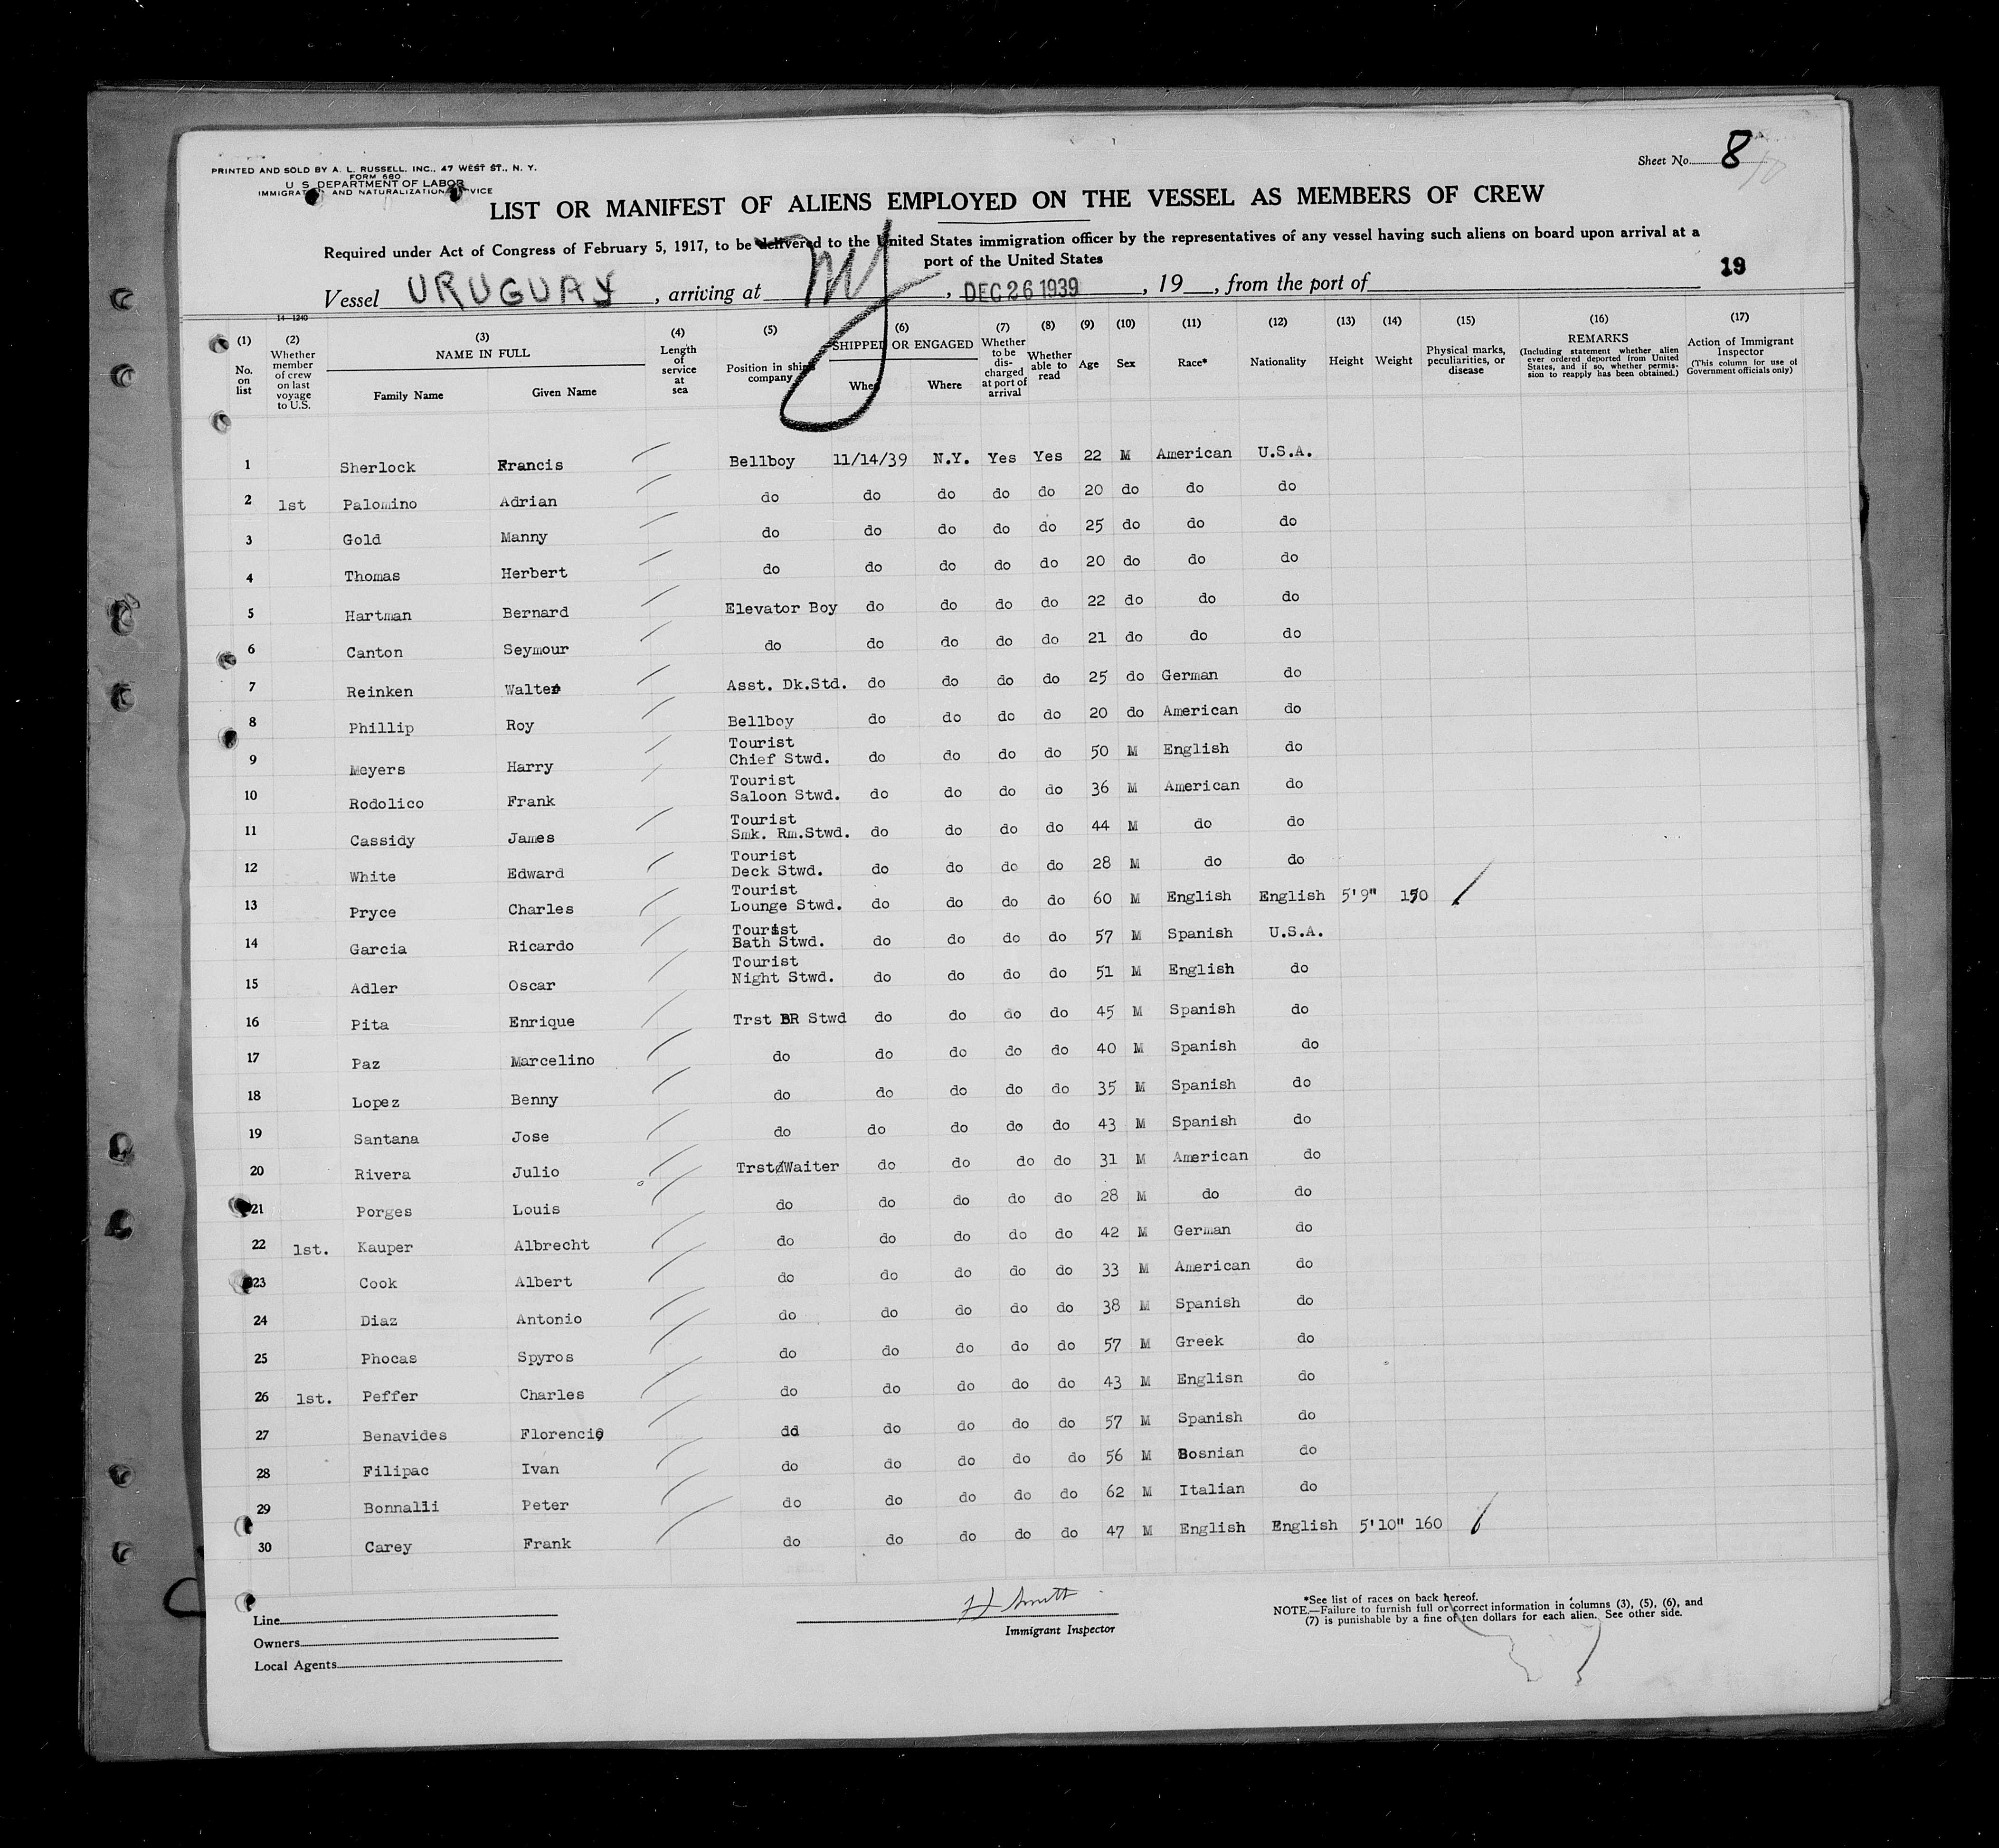 Sheet No. 8
PRINTED AND SOLD BY A. L. RUSSELL, INC., 47 WEST ST., N. Y.
FORM 680
U S DEPARTMENT OF LABOR
IMMIGRATION AND NATURALIZATION SERVICE
LIST OR MANIFEST OF ALIENS EMPLOYED ON THE VESSEL AS MEMBERS OF CREW
Required under Act of Congress of February 5, 1917, to be delivered to the United States immigration officer by the representatives of any vessel having such aliens on board upon arrival at a
port of the United States
19
Vessel URUGUAY, arriving at NY, DEC 26 1939, 19 , from the port of
14—1240
(1) No. on list (2) Whether member of crew on last voyage to U.S. (3) NAME IN FULL Family Name Given Name (4) Length of service at sea (5) Position in ship's company (6) SHIPPED OR ENGAGED When Where (7) Whether to be discharged at port of arrival (8) Whether able to read (9) Age (10) Sex (11) Race* (12) Nationality (13) Height (14) Weight (15) Physical marks, peculiarities, or disease (16) REMARKS (Including statement whether alien ever ordered deported from United States, and if so, whether permission to reapply has been obtained.) (17) Action of Immigrant Inspector (This column for use of Government officials only)
1 Sherlock Francis Bellboy 11/14/39 N.Y. Yes Yes 22 M American U.S.A.
2 1st Palomino Adrian do do do do do 20 do do do
3 Gold Manny do do do do do 25 do do do
4 Thomas Herbert do do do do do 20 do do do
5 Hartman Bernard Elevator Boy do do do do 22 do do do
6 Canton Seymour do do do do do 21 do do do
7 Reinken Walter Asst. Dk.Std. do do do do 25 do German do
8 Phillip Roy Bellboy do do do do 20 do American do
9 Meyers Harry Tourist Chief Stwd. do do do do 50 M English do
10 Rodolico Frank Tourist Saloon Stwd. do do do do 36 M American do
11 Cassidy James Tourist Smk. Rm.Stwd. do do do do 44 M do do
12 White Edward Tourist Deck Stwd. do do do do 28 M do do
13 Pryce Charles Tourist Lounge Stwd. do do do do 60 M English English 5'9" 150
14 Garcia Ricardo Tourist Bath Stwd. do do do do 57 M Spanish U.S.A.
15 Adler Oscar Tourist Night Stwd. do do do do 51 M English do
16 Pita Enrique Trst BR Stwd do do do do 45 M Spanish do
17 Paz Marcelino do do do do do 40 M Spanish do
18 Lopez Benny do do do do do 35 M Spanish do
19 Santana Jose do do do do do 43 M Spanish do
20 Rivera Julio Trst Waiter do do do do 31 M American do
21 Porges Louis do do do do do 28 M do do
22 1st. Kauper Albrecht do do do do do 42 M German do
23 Cook Albert do do do do do 33 M American do
24 Diaz Antonio do do do do do 38 M Spanish do
25 Phocas Spyros do do do do do 57 M Greek do
26 1st. Peffer Charles do do do do do 43 M Englisn do
27 Benavides Florencio dd do do do do 57 M Spanish do
28 Filipac Ivan do do do do do 56 M Bosnian do
29 Bonnalli Peter do do do do do 62 M Italian do
30 Carey Frank do do do do do 47 M English English 5'10" 160
Line
Owners
Local Agents
Immigrant Inspector
*See list of races on back hereof.
NOTE.—Failure to furnish full or correct information in columns (3), (5), (6), and
(7) is punishable by a fine of ten dollars for each alien. See other side.